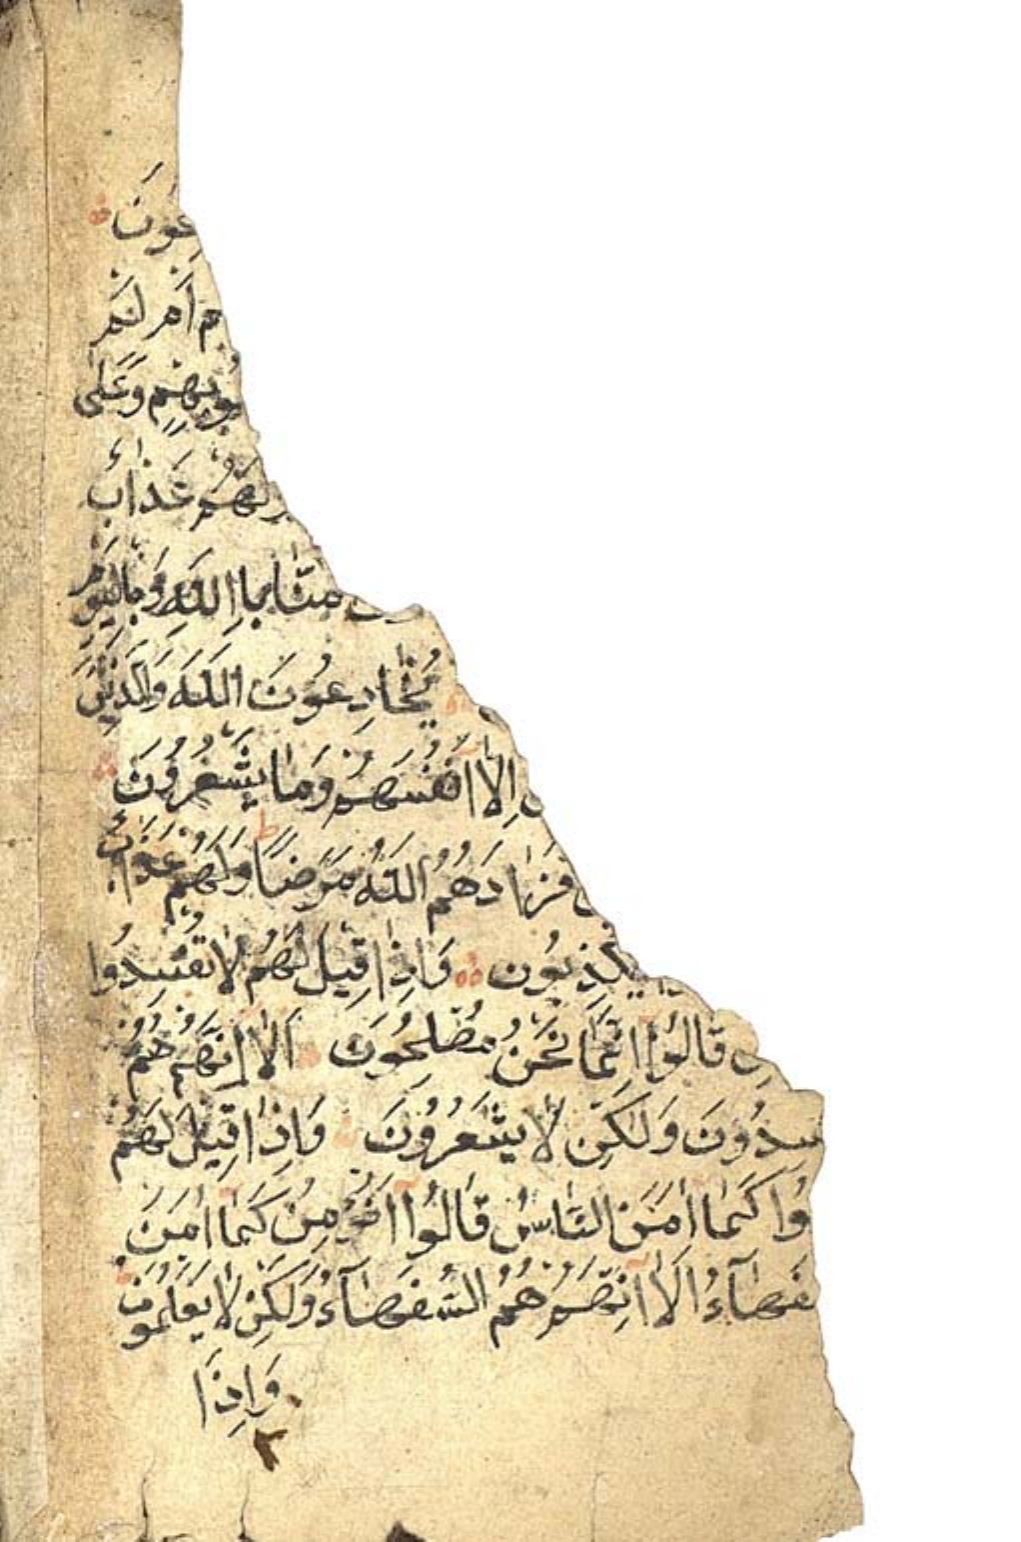 عُونَ
م أَمْ لَمْ
وبِهِمْ وَعَلَى
لَهُمْ عَذَابٌ
مَنَّا بِاللَّهِ وَبِالْيَوْمِ
يُخَادِعُونَ اللَّهَ وَالَّذِينَ
اِلَّا اَنْفُسَهُمْ وَمَا يَشْعُرُونَ
فَزَادَهُمُ اللَّهُ مَرَضًا وَلَهُمْ عَذَابٌ
يَكْذِبُونَ وَاِذَا قِيلَ لَهُمْ لَا تُفْسِدُوا
ضِ قَالُوا اِنَّمَا نَحْنُ مُصْلِحُونَ اَلَا اِنَّهُمْ هُمُ
سِدُونَ وَلَكِنْ لَا يَشْعُرُونَ وَاِذَا قِيلَ لَهُمْ
وُا كَمَا اٰمَنَ النَّاسُ قَالُوا اَنُؤْمِنُ كَمَا اٰمَنَ
فَهَاءُ اَلَا اِنَّهُمْ هُمُ السُّفَهَاءُ وَلَكِنْ لَا يَعْلَمُونَ
وَاِذَا